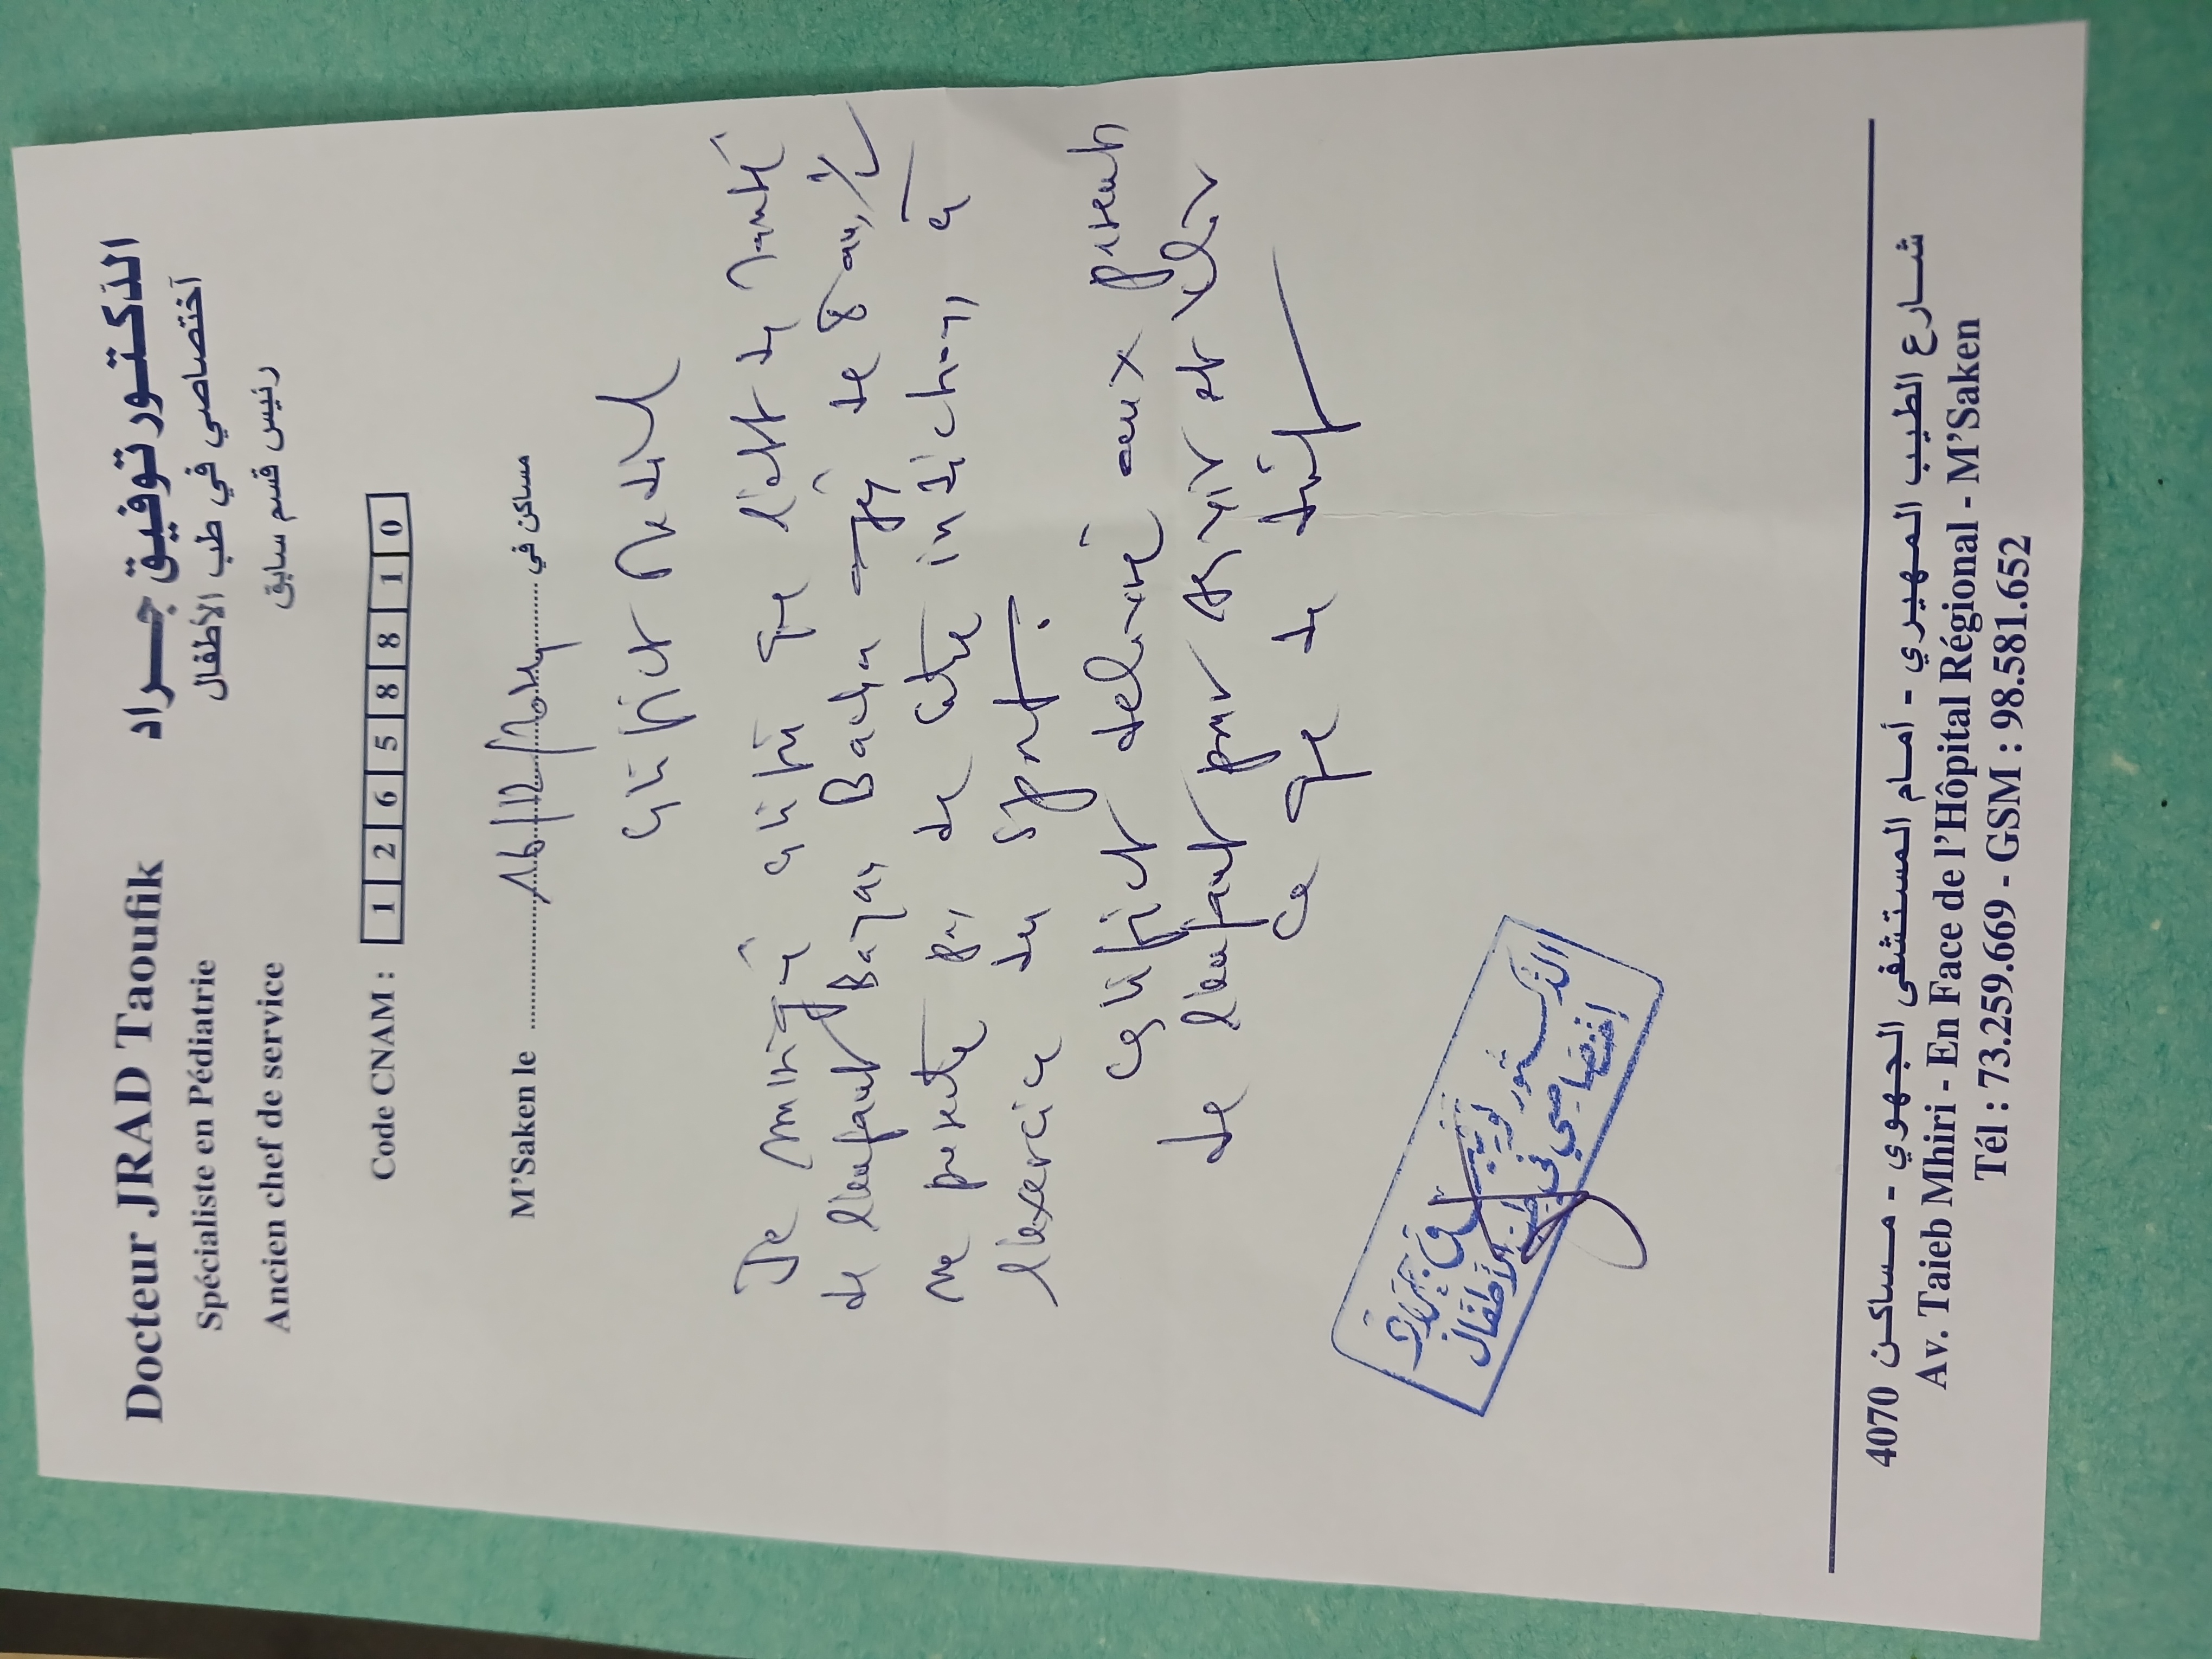 Docteur JRAD Taoufik
الدكتور توفيق جراد
Spécialiste en Pédiatrie
آختصاصي في طب الأطفال
Ancien chef de service
رئيس قسم سابق
Code CNAM : 1 2 6 5 8 8 1 0
M'Saken le ............ مساكن في
Certificat Médical
Je soussigné certifie que l'état de santé
de l'enfant Bayan Bacha agé de 8 ans 1/2
ne présente pas de contre indications à
l'exercice du sport.
Certificat délivré aux parents
de l'enfant pour servir et valoir
ce que de droit
الدكتور توفيق جراد
اختصاصي في طب الأطفال
شارع الطيب المهيري - أمام المستشفى الجهوي - مساكن 4070
Av. Taieb Mhiri - En Face de l'Hôpital Régional - M'Saken
Tél : 73.259.669 - GSM : 98.581.652